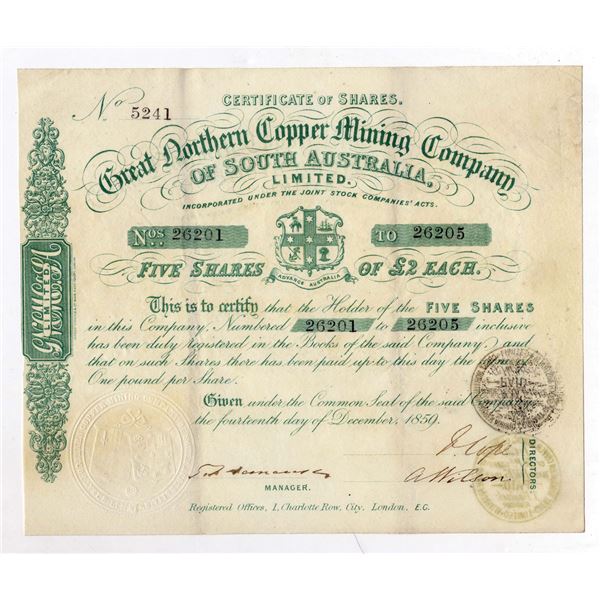 No 5241
CERTIFICATE OF SHARES.
Great Northern Copper Mining Company
OF SOUTH AUSTRALIA,
LIMITED.
INCORPORATED UNDER THE JOINT STOCK COMPANIES' ACTS.
Nos. 26201 TO 26205
ADVANCE AUSTRALIA
FIVE SHARES OF £2 EACH.
This is to certify that the Holder of the FIVE SHARES
in this Company, Numbered 26201 to 26205 inclusive
has been duly registered in the Books of the said Company; and
that on such Shares there has been paid up to this day the
One pound per Share.
Given under the Common Seal of the said Company
the fourteenth day of December, 1859.
J. Cope
A Wilson
DIRECTORS.
MANAGER.
Registered Offices, 1, Charlotte Row, City, London, E.C.
GNCMCo. of S.A.
LIMITED.